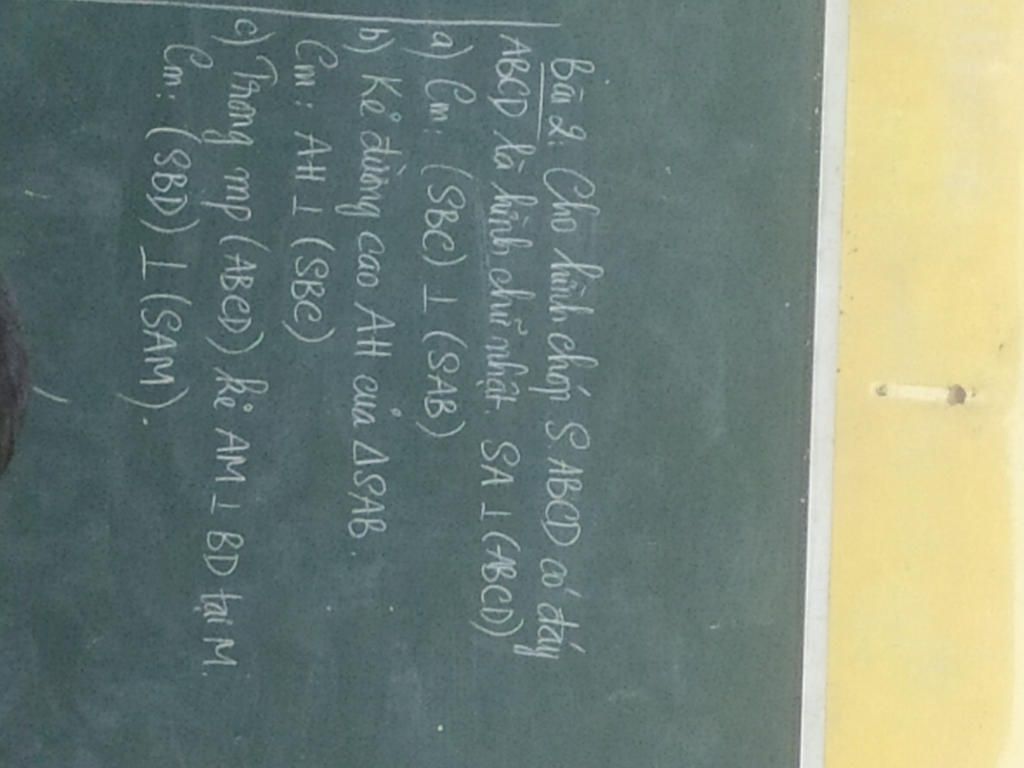 Bài 2: Cho hình chóp S ABCD có đáy
ABCD là hình chữ nhật. SA ⊥ (ABCD)
a) Cm: (SBC) ⊥ (SAB)
b) Kẻ đường cao AH của ΔSAB.
Cm: AH ⊥ (SBC)
c) Trong mp (ABCD) kẻ AM ⊥ BD tại M.
Cm: (SBD) ⊥ (SAM).